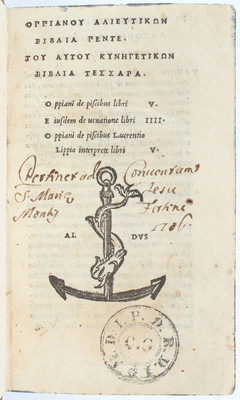 ΟΠΠΙΑΝΟΥ ΑΛΙΕΥΤΙΚΩΝ
ΒΙΒΛΙΑ ΠΕΝΤΕ.
ΤΟΥ ΑΥΤΟΥ ΚΥΝΗΓΕΤΙΚΩΝ
ΒΙΒΛΙΑ ΤΕΣΣΑΡΑ.
Oppiani de piscibus libri V.
Eiusdem de uenatione libri IIII.
Oppiani de piscibus Laurentio
Lippio interprete libri V.
Pertinet ad Conuentum
S. Mariæ Jesu
Montis
1706
AL DVS